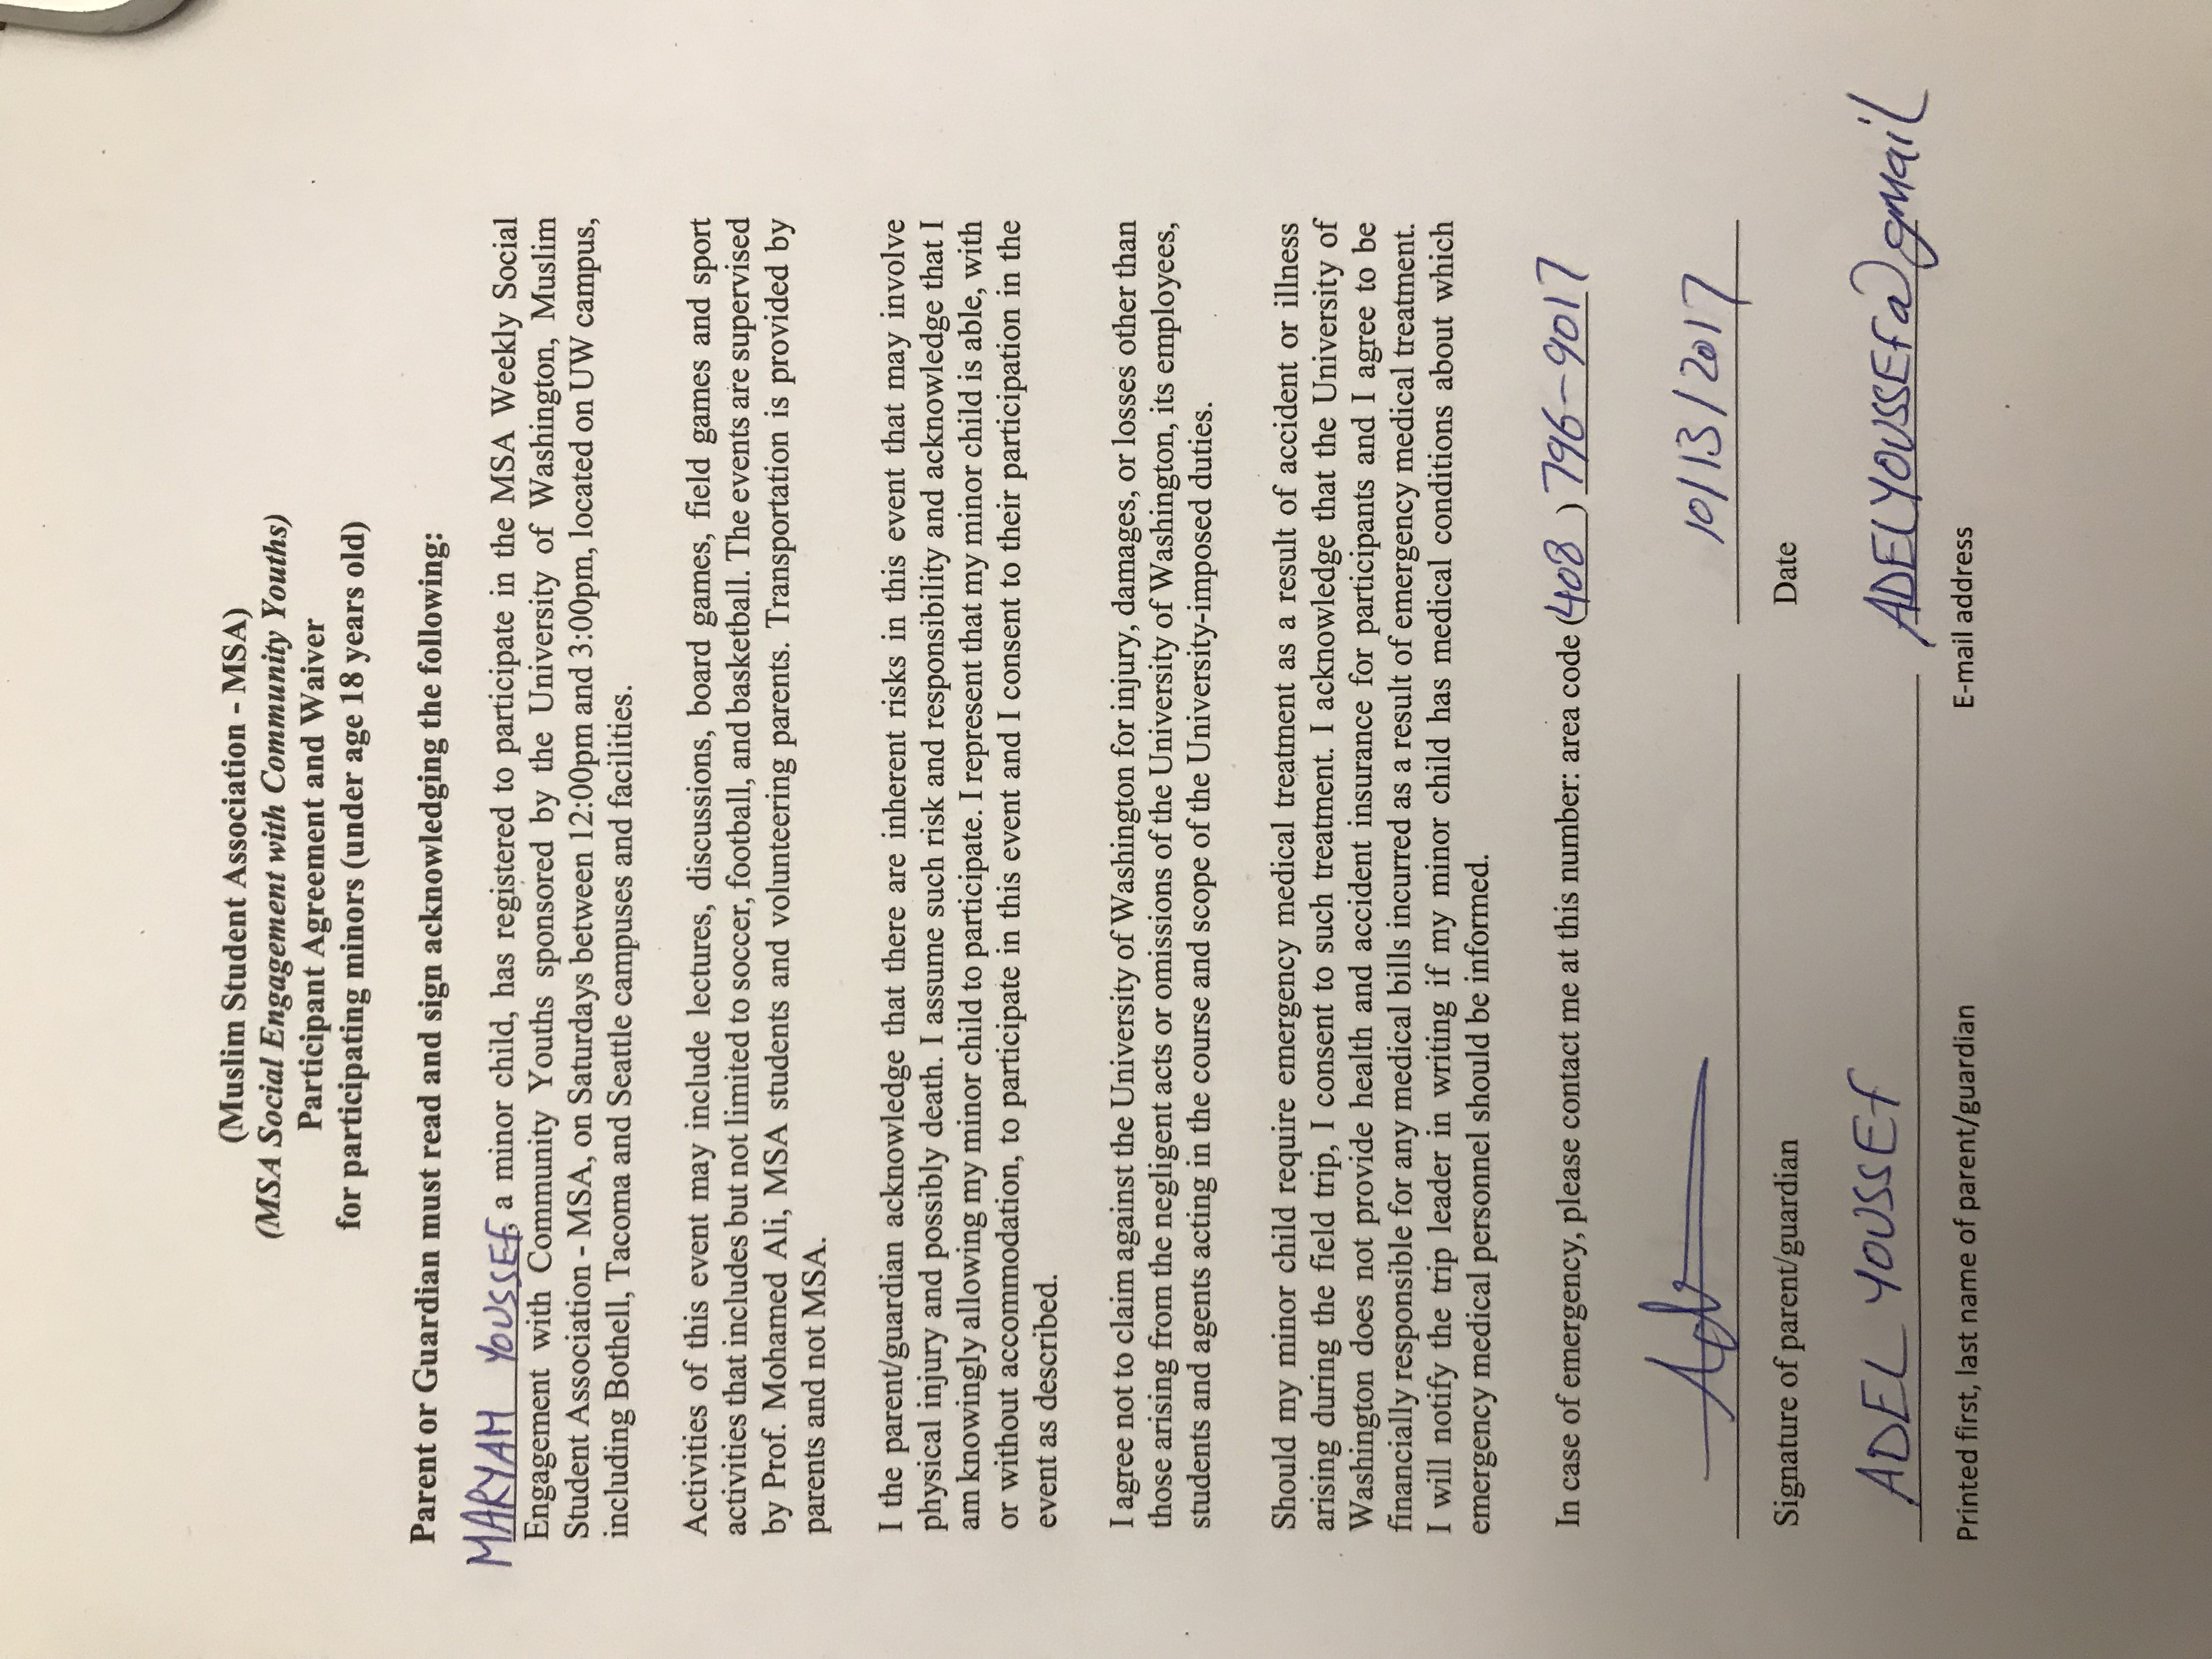 (Muslim Student Association - MSA)
(MSA Social Engagement with Community Youths)
Participant Agreement and Waiver
for participating minors (under age 18 years old)
Parent or Guardian must read and sign acknowledging the following:
MARYAM YOUSSEf, a minor child, has registered to participate in the MSA Weekly Social
Engagement with Community Youths sponsored by the University of Washington, Muslim
Student Association - MSA, on Saturdays between 12:00pm and 3:00pm, located on UW campus,
including Bothell, Tacoma and Seattle campuses and facilities.
Activities of this event may include lectures, discussions, board games, field games and sport
activities that includes but not limited to soccer, football, and basketball. The events are supervised
by Prof. Mohamed Ali, MSA students and volunteering parents. Transportation is provided by
parents and not MSA.
I the parent/guardian acknowledge that there are inherent risks in this event that may involve
physical injury and possibly death. I assume such risk and responsibility and acknowledge that I
am knowingly allowing my minor child to participate. I represent that my minor child is able, with
or without accommodation, to participate in this event and I consent to their participation in the
event as described.
I agree not to claim against the University of Washington for injury, damages, or losses other than
those arising from the negligent acts or omissions of the University of Washington, its employees,
students and agents acting in the course and scope of the University-imposed duties.
Should my minor child require emergency medical treatment as a result of accident or illness
arising during the field trip, I consent to such treatment. I acknowledge that the University of
Washington does not provide health and accident insurance for participants and I agree to be
financially responsible for any medical bills incurred as a result of emergency medical treatment.
I will notify the trip leader in writing if my minor child has medical conditions about which
emergency medical personnel should be informed.
In case of emergency, please contact me at this number: area code (408) 796-9017
10/13/2017
Signature of parent/guardian Date
ADEL YOUSSEf ADELYOUSSEf@gmail
Printed first, last name of parent/guardian E-mail address